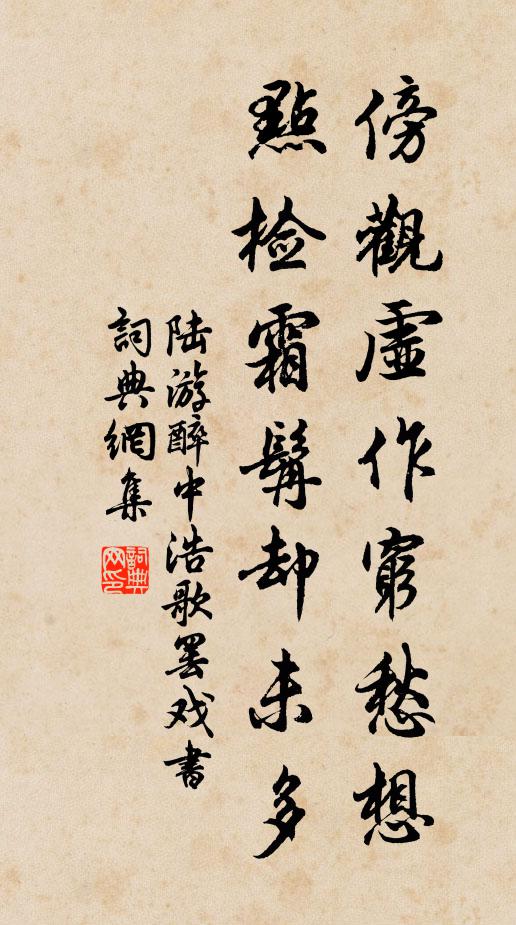 傍觀虛作窮愁想
點檢霜鬢却未多
陆游醉中浩歌罢戏书
詞典網集
詞典網印